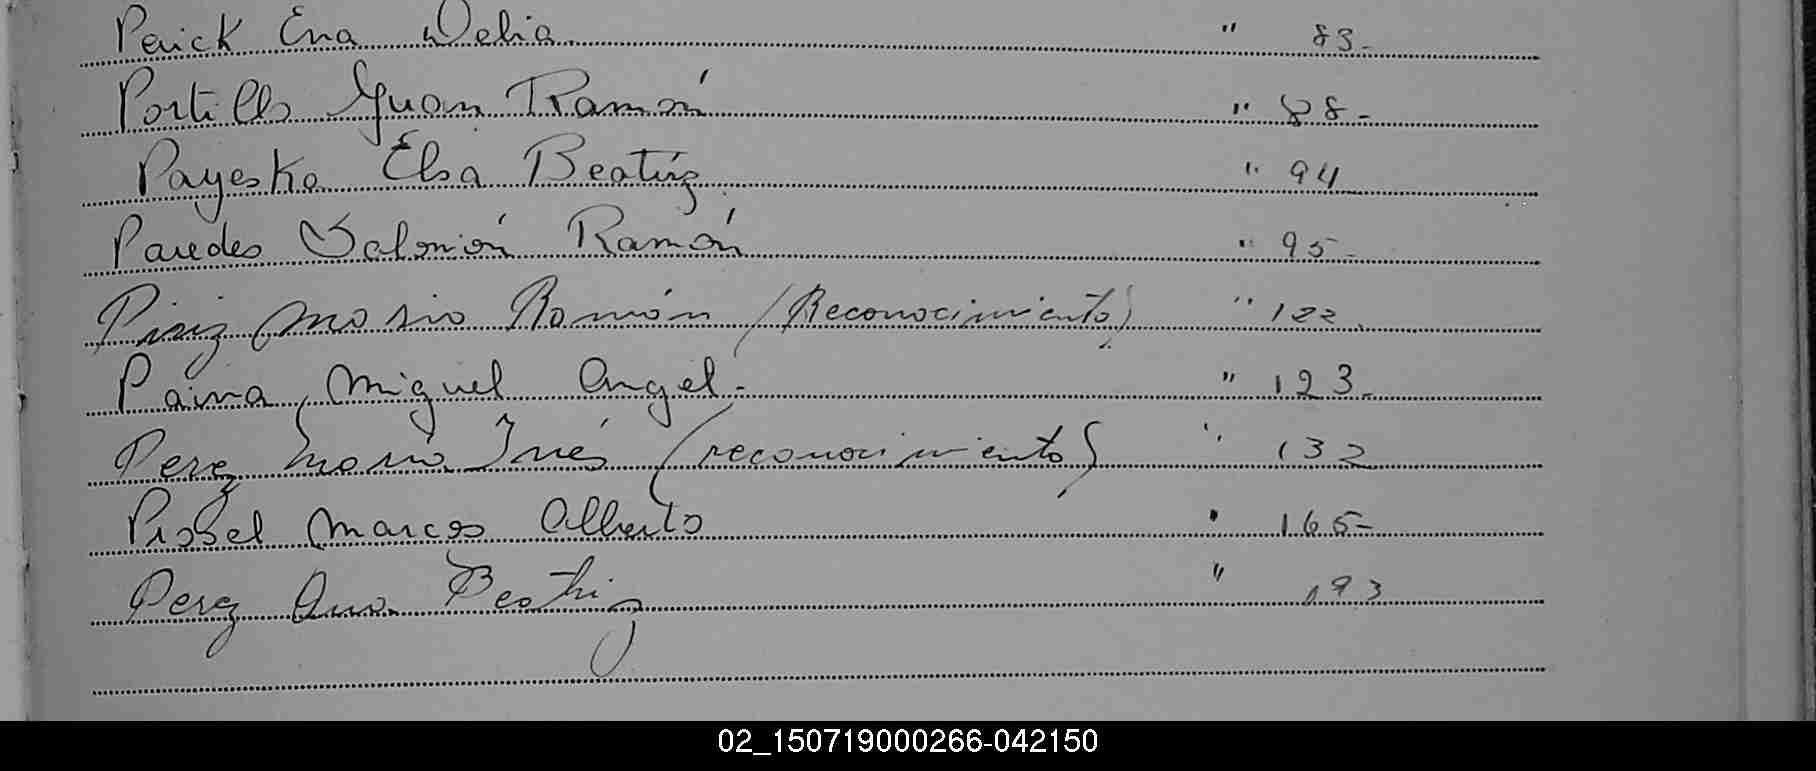 Perick Ena Delia " 83-
Portillo Juan Ramón " 88-
Payeska Elsa Beatríz " 94
Paredes Salomón Ramón " 95-
Piriz Mario Román (Reconocimiento) " 122.
Paiva, Miguel Angel.- " 123.-
Perez María Inés (reconocimiento) " 132
Pissel Marcos Alberto " 165-
Perez Ana Beatriz " 193
02_150719000266-042150